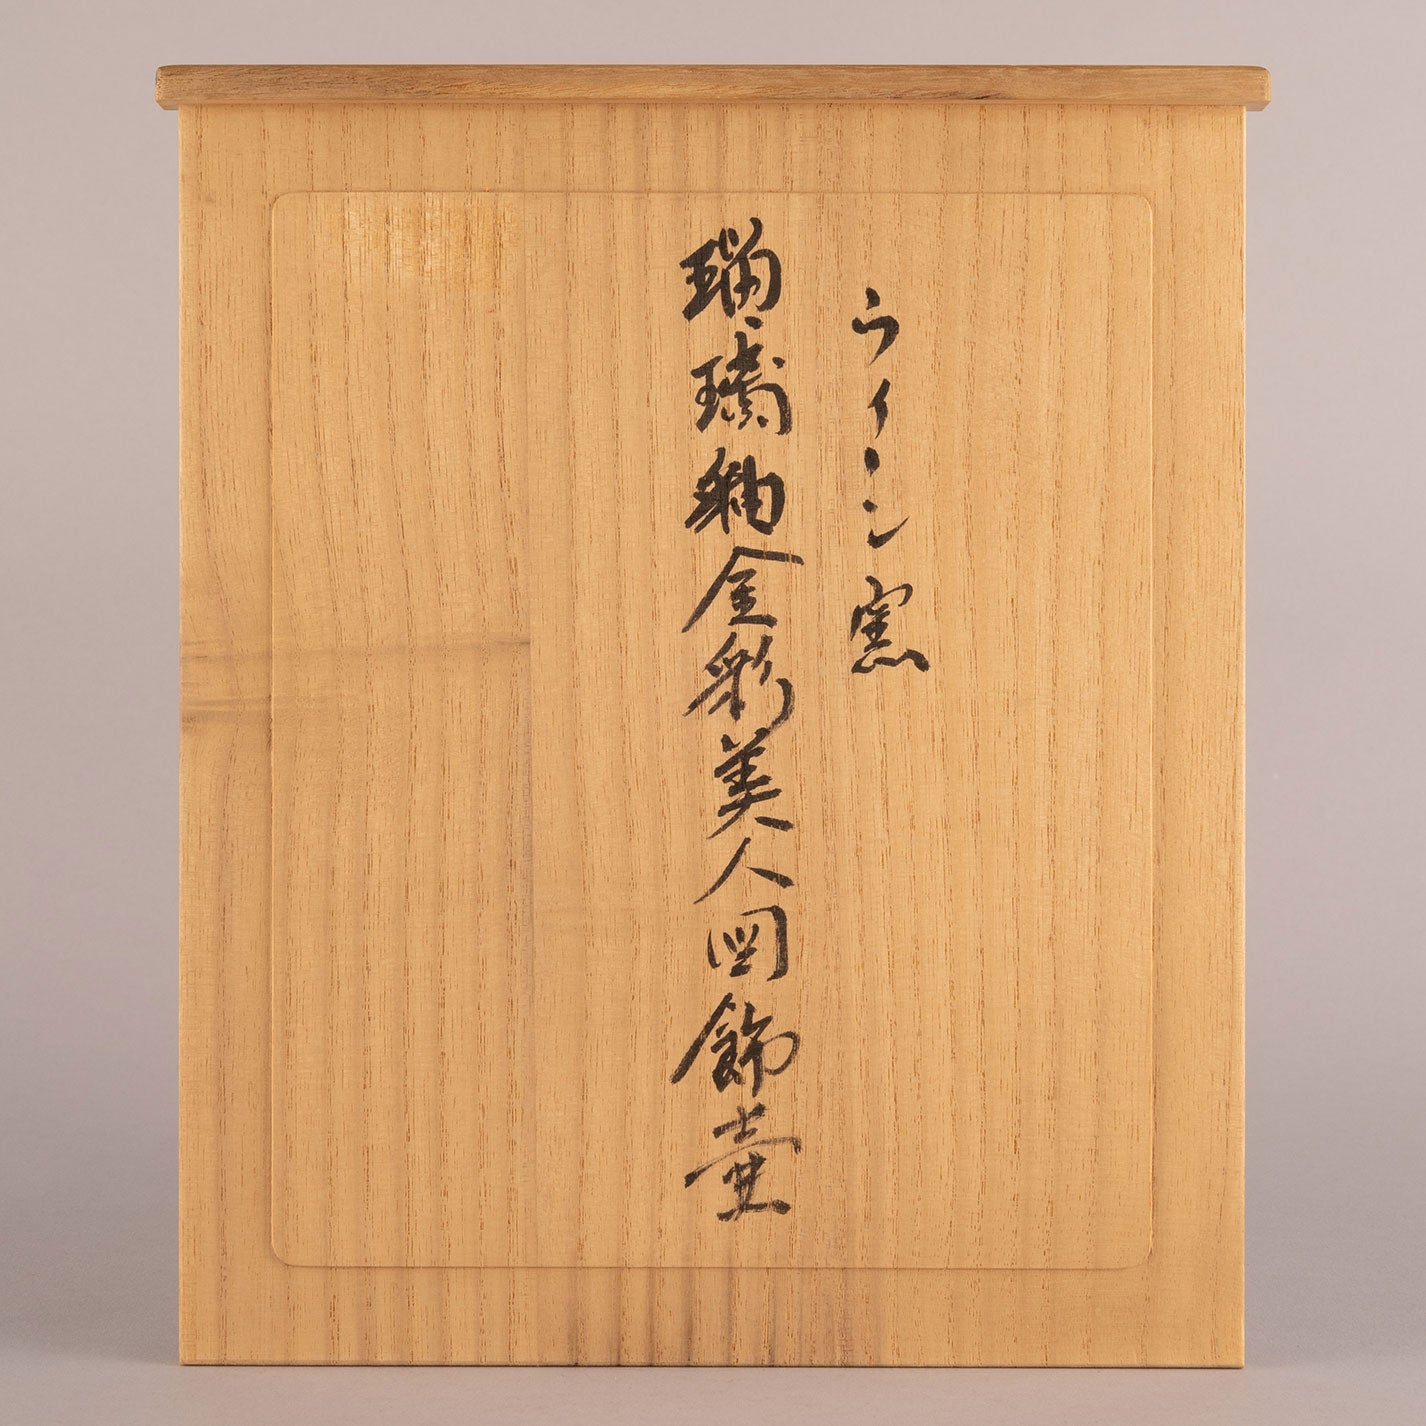 ウィーン窯
瑠璃釉金彩美人図飾壷